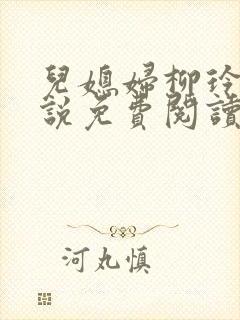 兒媳婦柳玲
說免費閱讀
河丸慎